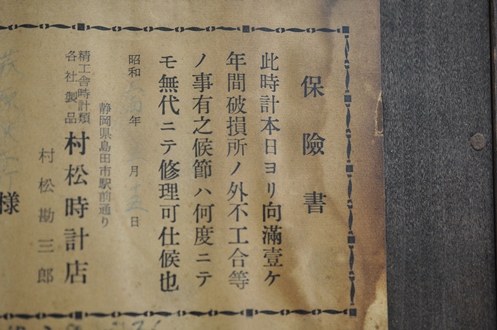 保險書
此時計本日ヨリ向滿壹ケ
年間破損所ノ外不工合等
ノ事有之候節ハ何度ニテ
モ無代ニテ修理可仕候也
昭和 年 月 日
静岡県島田市駅前通り
精工舎時計類
各社製品
村松時計店
村松勘三郎
様